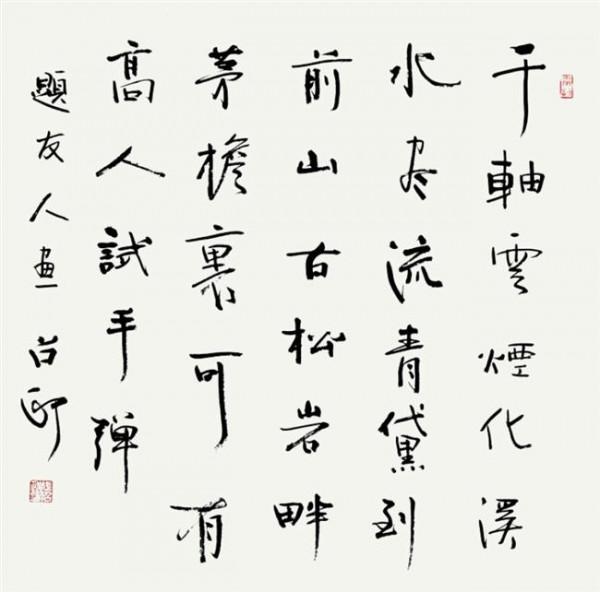 千軸雲煙化溪
水尽流青黛到
前山古松岩畔
茅檐裏可有
高人試手弹
題友人画